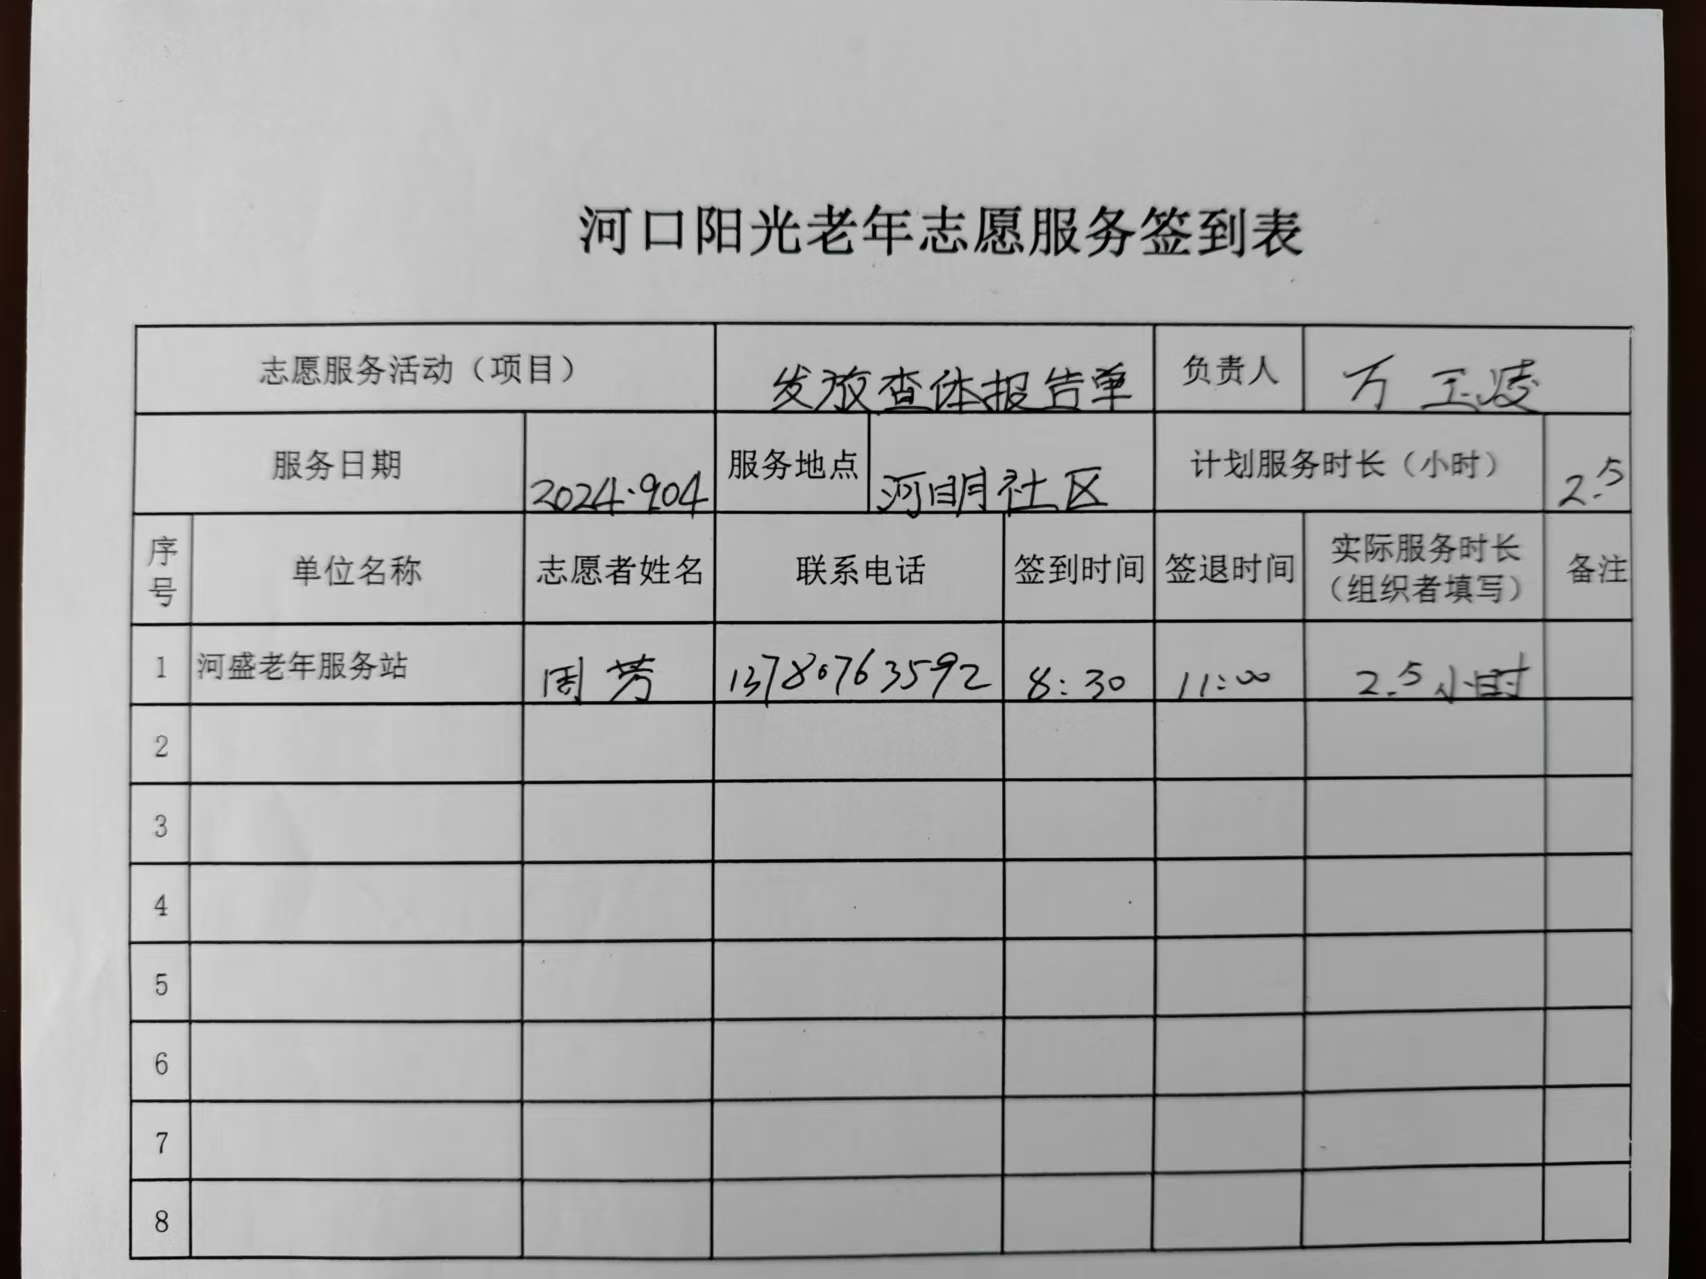 河口阳光老年志愿服务签到表
志愿服务活动（项目） 发放查体报告单 负责人 万玉凌
服务日期 2024.904 服务地点 河明社区 计划服务时长（小时） 2.5
序号 单位名称 志愿者姓名 联系电话 签到时间 签退时间 实际服务时长（组织者填写） 备注
1 河盛老年服务站 周芳 13780763592 8:30 11:00 2.5小时
2
3
4
5
6
7
8